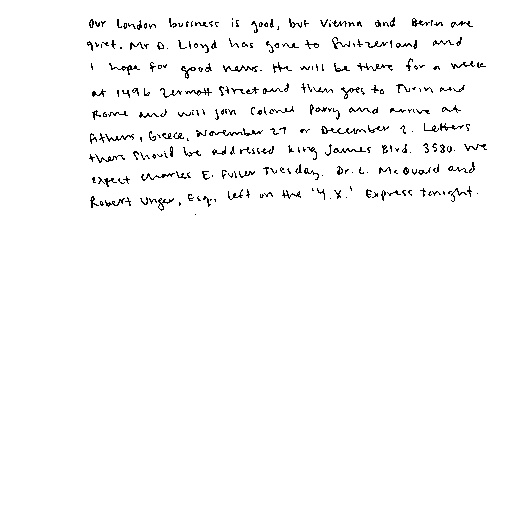 Our London business is good, but Vienna and Berlin are
quiet. Mr D. Lloyd has gone to Switzerland and
I hope for good news. He will be there for a week
at 1496 Zermott Street and then goes to Turin and
Rome and will join Colonel Parry and arrive at
Athens, Greece, November 27 or December 2. Letters
there should be addressed King James Blvd. 3580. We
expect Charles E. Fuller Tuesday. Dr. L. McQuaid and
Robert Unger, Esq., left on the 'Y.X.' Express tonight.